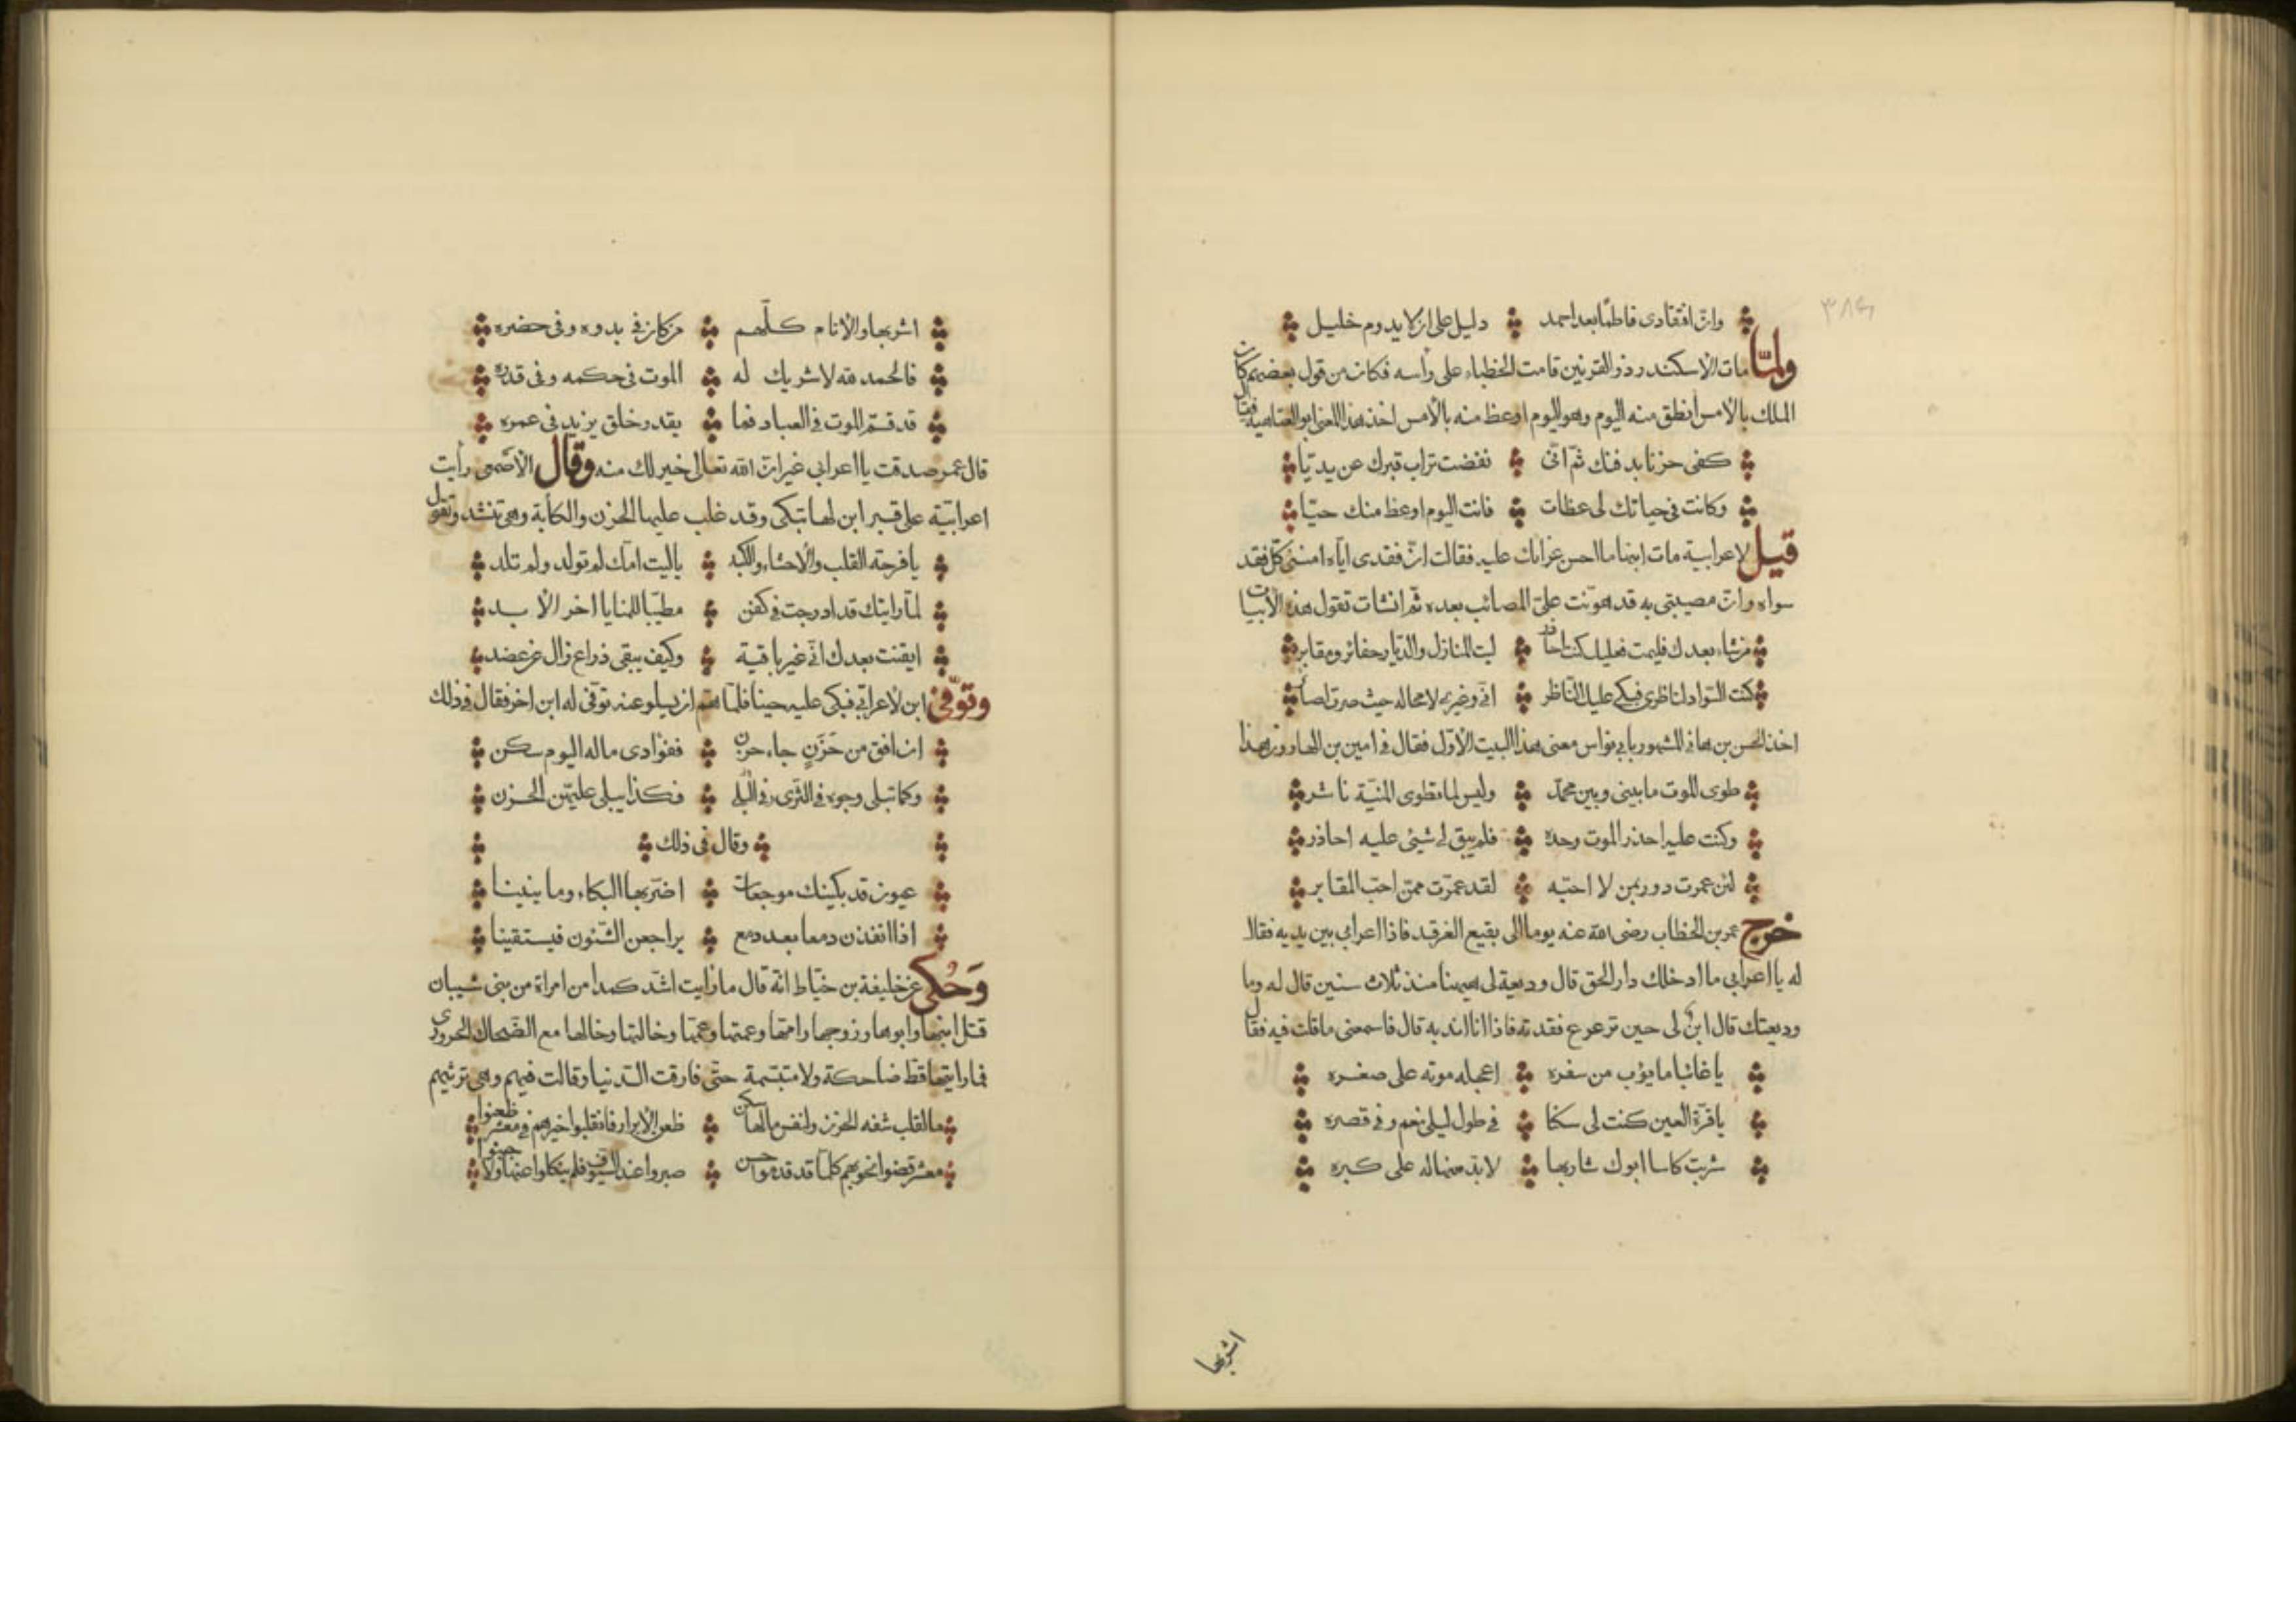 ٣٨٤
وان افتقادى فاطما بعد احمد دليل على ان لا يدوم خليل
ولمّا مات الاسكندر ذو القرنين قامت الخطباء على رأسه فكان من قول بعضهم كان
الملك بالامس أنطق منه اليوم وهو اليوم اوعظ منه بالأمس اخذ هذا المعنى ابو العتاهية فقال
كفى حزنا بدفنك ثم انّى نفضت تراب قبرك عن يديّا
وكانت فى حياتك لى عظات فانت اليوم اوعظ منك حيّا
قيل لاعرابية مات ابنها ما احسن عزائك عليه فقالت انّ فقدى ايّاه امننى كلّ فقد
سواه وانّ مصيبتى به قد هوّنت علىّ المصائب بعده ثم انشات تقول هذه الأبيات
من شاء بعدك فليمت فعليك كنت احاذر ليت المنازل والديار حفائر ومقابر
كنت السّواد لناظرى فبكى عليك النّاظر انّى وغيرى لا محاله حيث صرت لصائر
اخذ الحسن بن هانى المشهور بابى نواس معنى هذا البيت الأوّل فقال فى امين بن الهارون هذا
طوى الموت ما بينى وبين محمّد وليس لما تطوى المنيّة ناشر
وكنت عليه احذر الموت وحده فلم يبق لى شيئ عليه احاذر
لئن عمرت دور بمن لا احبّه لقد عمّرت ممّن احبّ المقابر
خرج عمر بن الخطاب رضى الله عنه يوما الى بقيع الغرقد فاذا اعرابى بين يديه فقال
له يا اعرابى ما ادخلك دار الحق قال وديعة لى هيهنا منذ ثلاث سنين قال له وما
وديعتك قال ابن لى حين ترعرع فقدته فاذا انا اندبه قال فاسمعنى ما قلت فيه فقال
يا غائبا ما يؤب من سفره اعجله موته على صغره
يا قرّة العين كنت لى سكنا فى طول ليلى نعم وفى قصره
شربت كاسا ابوك شاربها لا بدّ منها له على كبره
اشربها
اشربها والانام كلّهم من كان فى بدوه وفى حضره
فالحمد لله لا شريك له الموت فى حكمه وفى قدره
قد قسّم الموت فى العباد فما يقدر خلق يزيد فى عمره
قال عمر صدقت يا اعرابى غير انّ الله تعالى خير لك منه وقال الاصمعى رأيت
اعرابيّة على قبر ابن لها تبكى وقد غلب عليها الحزن والكابة وهى تنشد وتقول
يا فرحة القلب والأحشاء والكبد يا ليت امّك لم تولد ولم تلد
لمّا رايتك قد ادرجت فى كفن مطيّبا للمنايا اخر الأبد
ايقنت بعدك انّى غير باقية وكيف يبقى ذراع زال عن عضد
وتوفّى ابن لأعرابى فبكى عليه حينا فلمّا هم ان يسلو عنه توفّى له ابن اخر فقال فى ذلك
ان افق من حَزَنٍ جاء حزن ففؤادى ماله اليوم سكن
وكما تبلى وجوه فى الثّرى فى البلى فكذا يبلى عليهنّ الحزن
وقال فى ذلك
عيون قد بكينك موجعات اضرّ بها البكاء وما ينينا
اذا انفذن دمعا بعد دمع يراجعن الشّئون فيستقينا
وَحُكى عن خليفة بن خيّاط انّه قال ما رايت اشدّ كمدا من امراة من بنى شيبان
قتل ابنها وابوها وزوجها وامّها وعمتها وعمّها وخالتها وخالها مع الضّحاك الحرورى
فما رايتها قط ضاحكة ولا متبسّمة حتّى فارقت الدّنيا وقالت فيهم وهى ترثيهم
ما لقلب شفه الحزن ولنفس مالها سكن ظعن الأبرار فانقلبوا خيرهم فى معشر ظعنوا
معشر قضوا نحوبهم كلّما قد قدموا حسن صبروا عند السّيوف فلم ينكلوا عنها ولا جبنوا